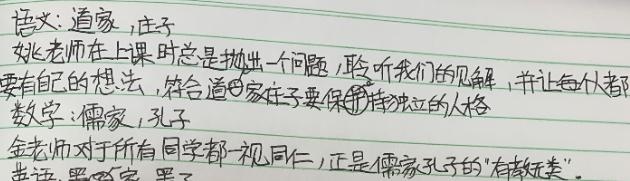 语文:道家,庄子
姚老师在上课时总是抛出一个问题,聆听我们的见解,并让每个人都
要有自己的想法,符合道家庄子要保持独立的人格
数学:儒家,孔子
金老师对于所有同学都一视同仁,正是儒家孔子的“有教无类”。
英语:墨家 墨子